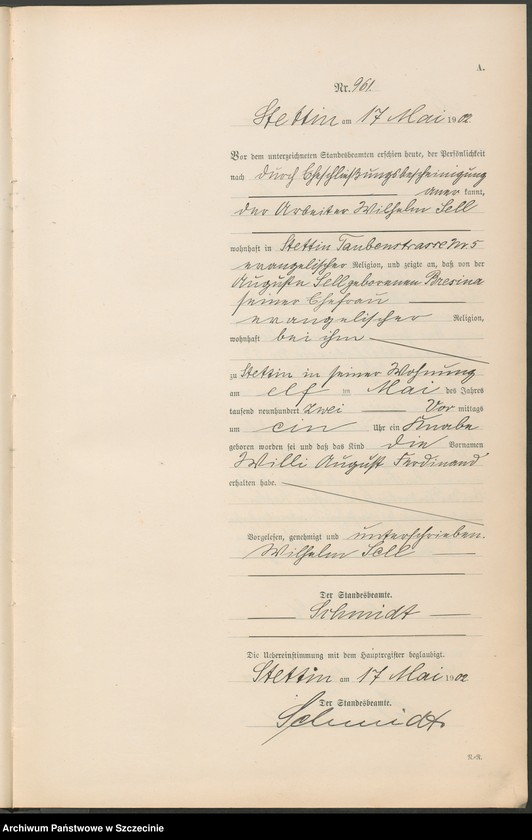 A.
Nr. 961
Stettin am 17 Mai 1902
Vor dem unterzeichneten Standesbeamten erschien heute, der Persönlichkeit
nach durch Eheschließungsbescheinigung
aner kannt,
der Arbeiter Wilhelm Sell
wohnhaft in Stettin Taubenstrasse Nr 5
evangelischer Religion, und zeigte an, daß von der
Auguste Sell geborenen Bresina
seiner Ehefrau
evangelischer Religion,
wohnhaft bei ihm
zu Stettin in seiner Wohnung
am elf ten Mai des Jahres
tausend neunhundert zwei Vor mittags
um ein Uhr ein Knabe
geboren worden sei und daß das Kind die Vornamen
Willi August Ferdinand
erhalten habe.
Vorgelesen, genehmigt und unterschrieben.
Wilhelm Sell
Der Standesbeamte.
Schmidt
Die Uebereinstimmung mit dem Hauptregister beglaubigt.
Stettin am 17 Mai 1902
Der Standesbeamte.
Schmidt
N.-R.
Archiwum Państwowe w Szczecinie